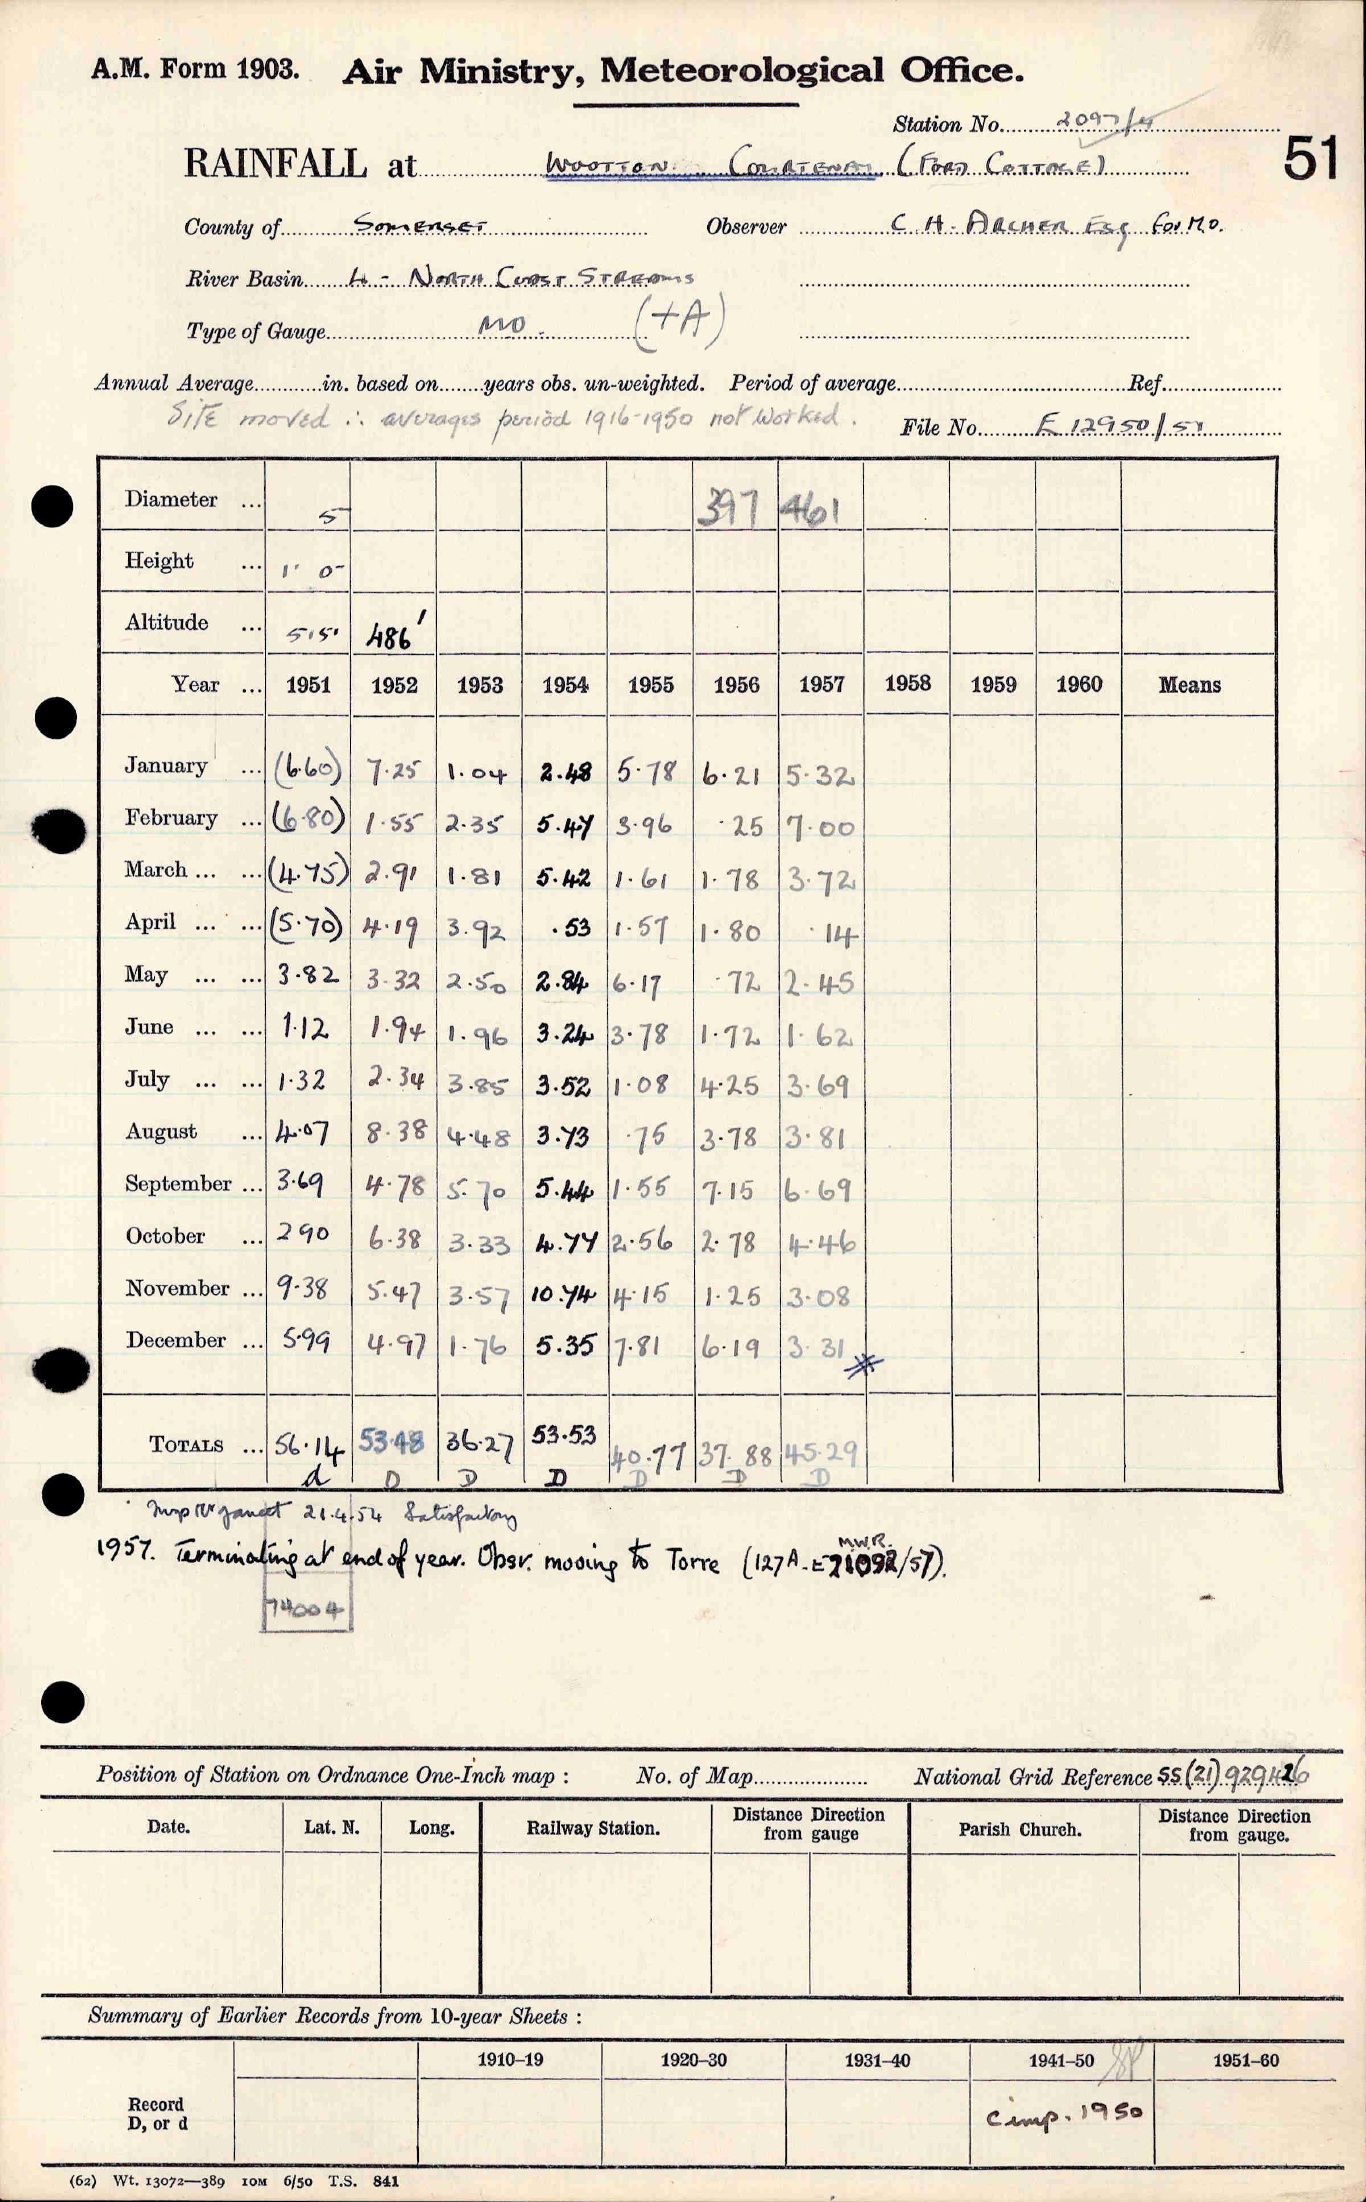 A.M. Form 1903. Air Ministry, Meteorological Office.
Station No. 2097/4
51
RAINFALL at WOOTTON COURTENAY (FORD COTTAGE)
County of SOMERSET Observer C. H. ARCHER Esq for M.O.
River Basin 4 - NORTH COAST STREAMS
Type of Gauge MO. (+A)
Annual Average in. based on years obs. un-weighted. Period of average Ref.
SITE moved ∴ averages period 1916-1950 not worked.
File No. E 12950/51
Diameter ... 5 397 461
Height ... 1' 0"
Altitude ... 515' 486'
Year ... 1951 1952 1953 1954 1955 1956 1957 1958 1959 1960 Means
January ... (6.60) 7.25 1.04 2.48 5.78 6.21 5.32
February ... (6.80) 1.55 2.35 5.47 3.96 .25 7.00
March ... ... (4.75) 2.91 1.81 5.42 1.61 1.78 3.72
April ... ... (5.70) 4.19 3.92 .53 1.57 1.80 .14
May ... ... 3.82 3.32 2.50 2.84 6.17 .72 2.45
June ... ... 1.12 1.94 1.96 3.24 3.78 1.72 1.62
July ... ... 1.32 2.34 3.85 3.52 1.08 4.25 3.69
August ... 4.07 8.38 4.48 3.73 .75 3.78 3.81
September ... 3.69 4.78 5.70 5.44 1.55 7.15 6.69
October ... 2 90 6.38 3.33 4.77 2.56 2.78 4.46
November ... 9.38 5.47 3.57 10.74 4.15 1.25 3.08
December ... 5.99 4.97 1.76 5.35 7.81 6.19 3.31
TOTALS ... 56.14 53.48 36.27 53.53 40.77 37.88 45.29
d D D D D D D
21.4.54 Satisfactory
M.W.R.
1957. Terminating at end of year. Obsr. moving to Torre (127A-E21092/57).
74004
Position of Station on Ordnance One-Inch map : No. of Map National Grid Reference SS(21)929426
Date. Lat. N. Long. Railway Station. Distance Direction from gauge Parish Church. Distance Direction from gauge.
Summary of Earlier Records from 10-year Sheets :
1910–19 1920–30 1931–40 1941–50 1951–60
Record D, or d
comp. 1950
(62) Wt. 13072—389 10M 6/50 T.S. 841